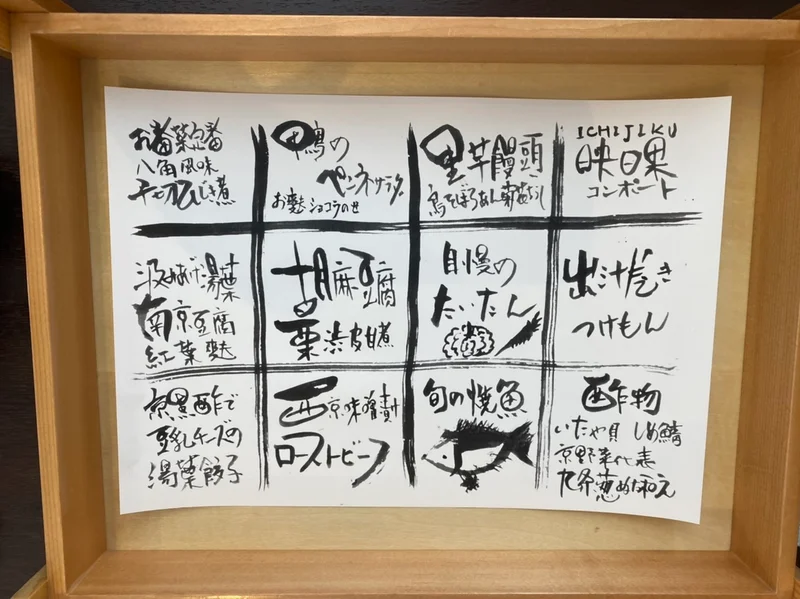 お番菜定番
八角風味
ひじき煮
鴨の
ペンネサラダ
お麩ショコラのせ
里芋饅頭
鳥そぼろあん
ICHIJIKU
映日果
コンポート
汲みあげ湯葉
南京豆腐
紅葉麩
胡麻豆腐
栗渋皮甘煮
自慢の
たいたん
出汁だき
つけもん
京黒酢で
豆乳チーズの
湯葉餃子
西京味噌漬け
ローストビーフ
旬の焼魚
酢物
いたや貝 しめ鯖
京野菜代表
九条葱ぬた和え